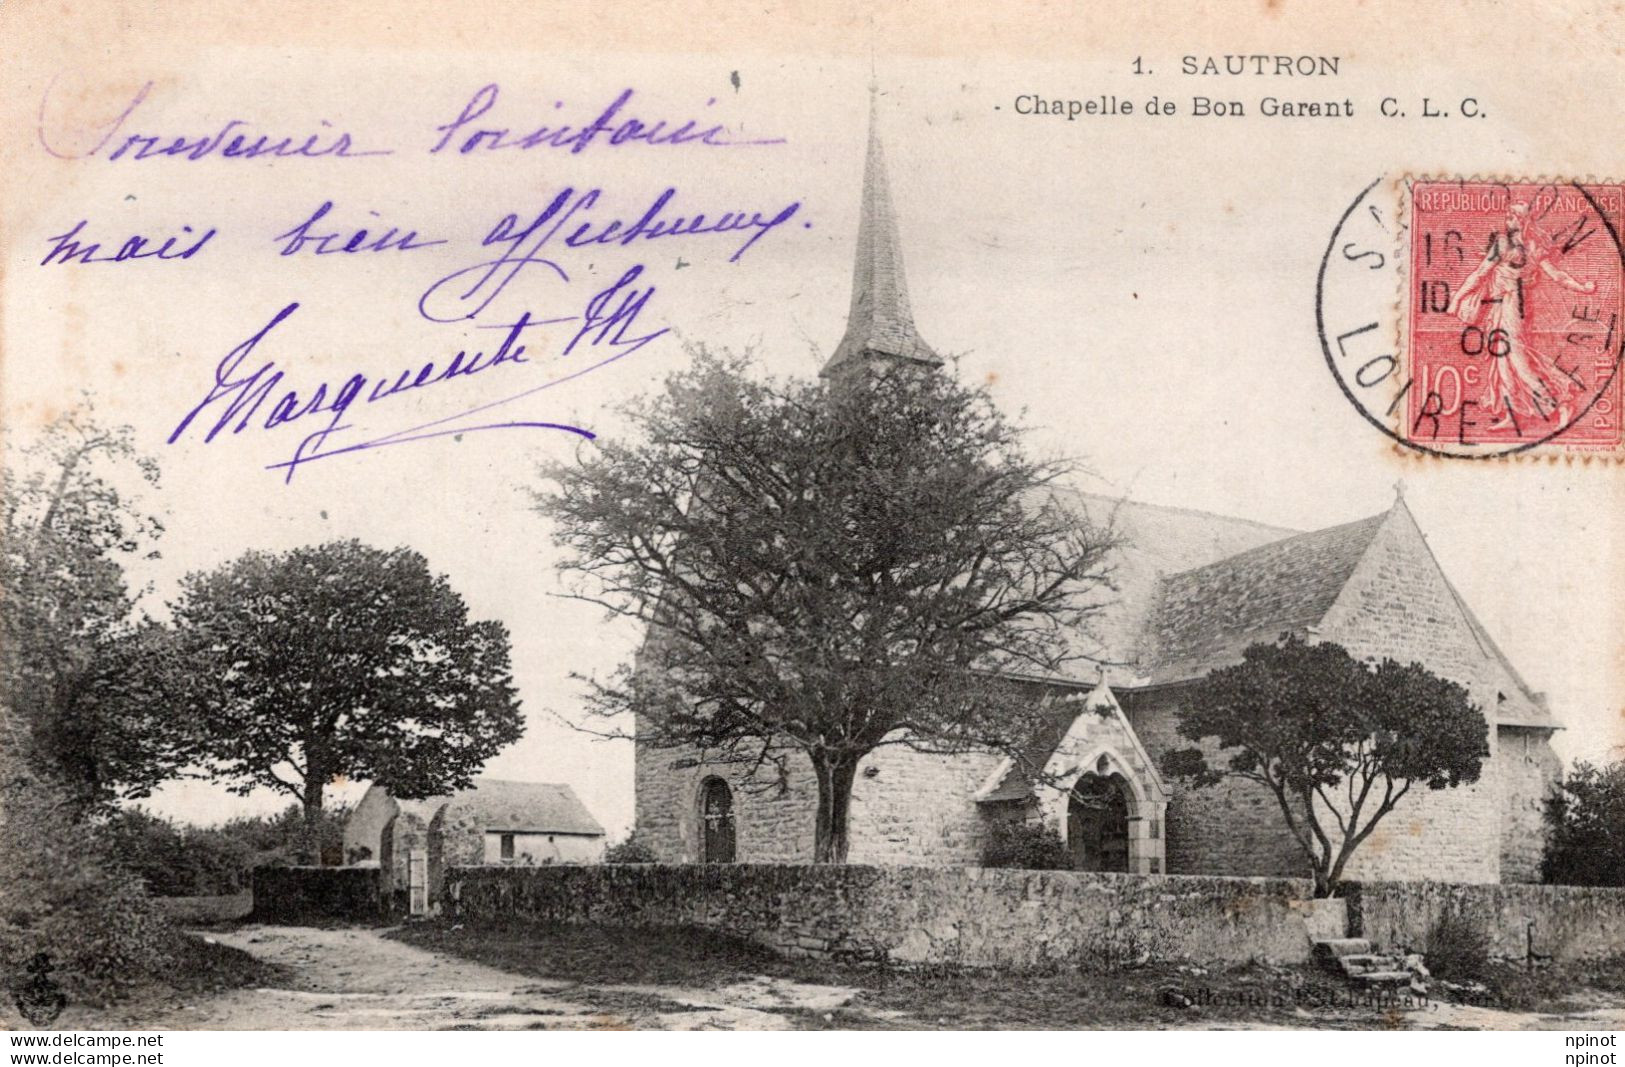 1. SAUTRON
- Chapelle de Bon Garant C. L. C.
Souvenir lointain
mais bien affectueux.
Marguerite M
RÉPUBLIQUE FRANÇAISE
10c
POSTES
SAUTRON
16 45
10 -1
06
LOIRE-INFRE
Collection F. Chapeau, Nantes
www.delcampe.net
www.delcampe.net
npinot
npinot